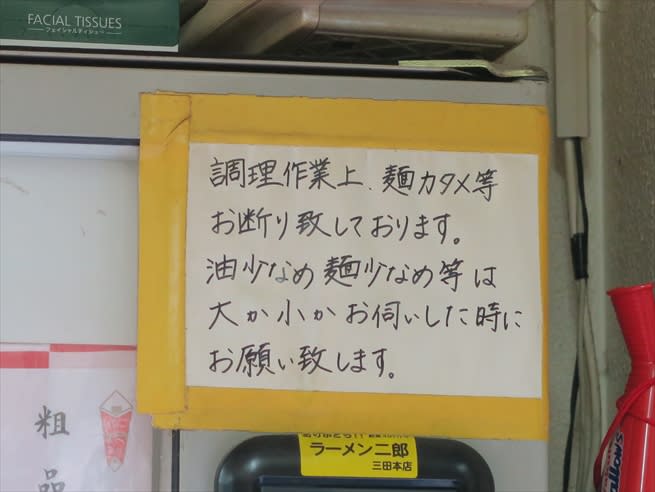 FACIAL TISSUES
フェイシャルティシュー
調理作業上、麺カタメ等
お断り致しております。
油少なめ麺少なめ等は
大か小かお伺いした時に
お願い致します。
粗品
ラーメン二郎
三田本店